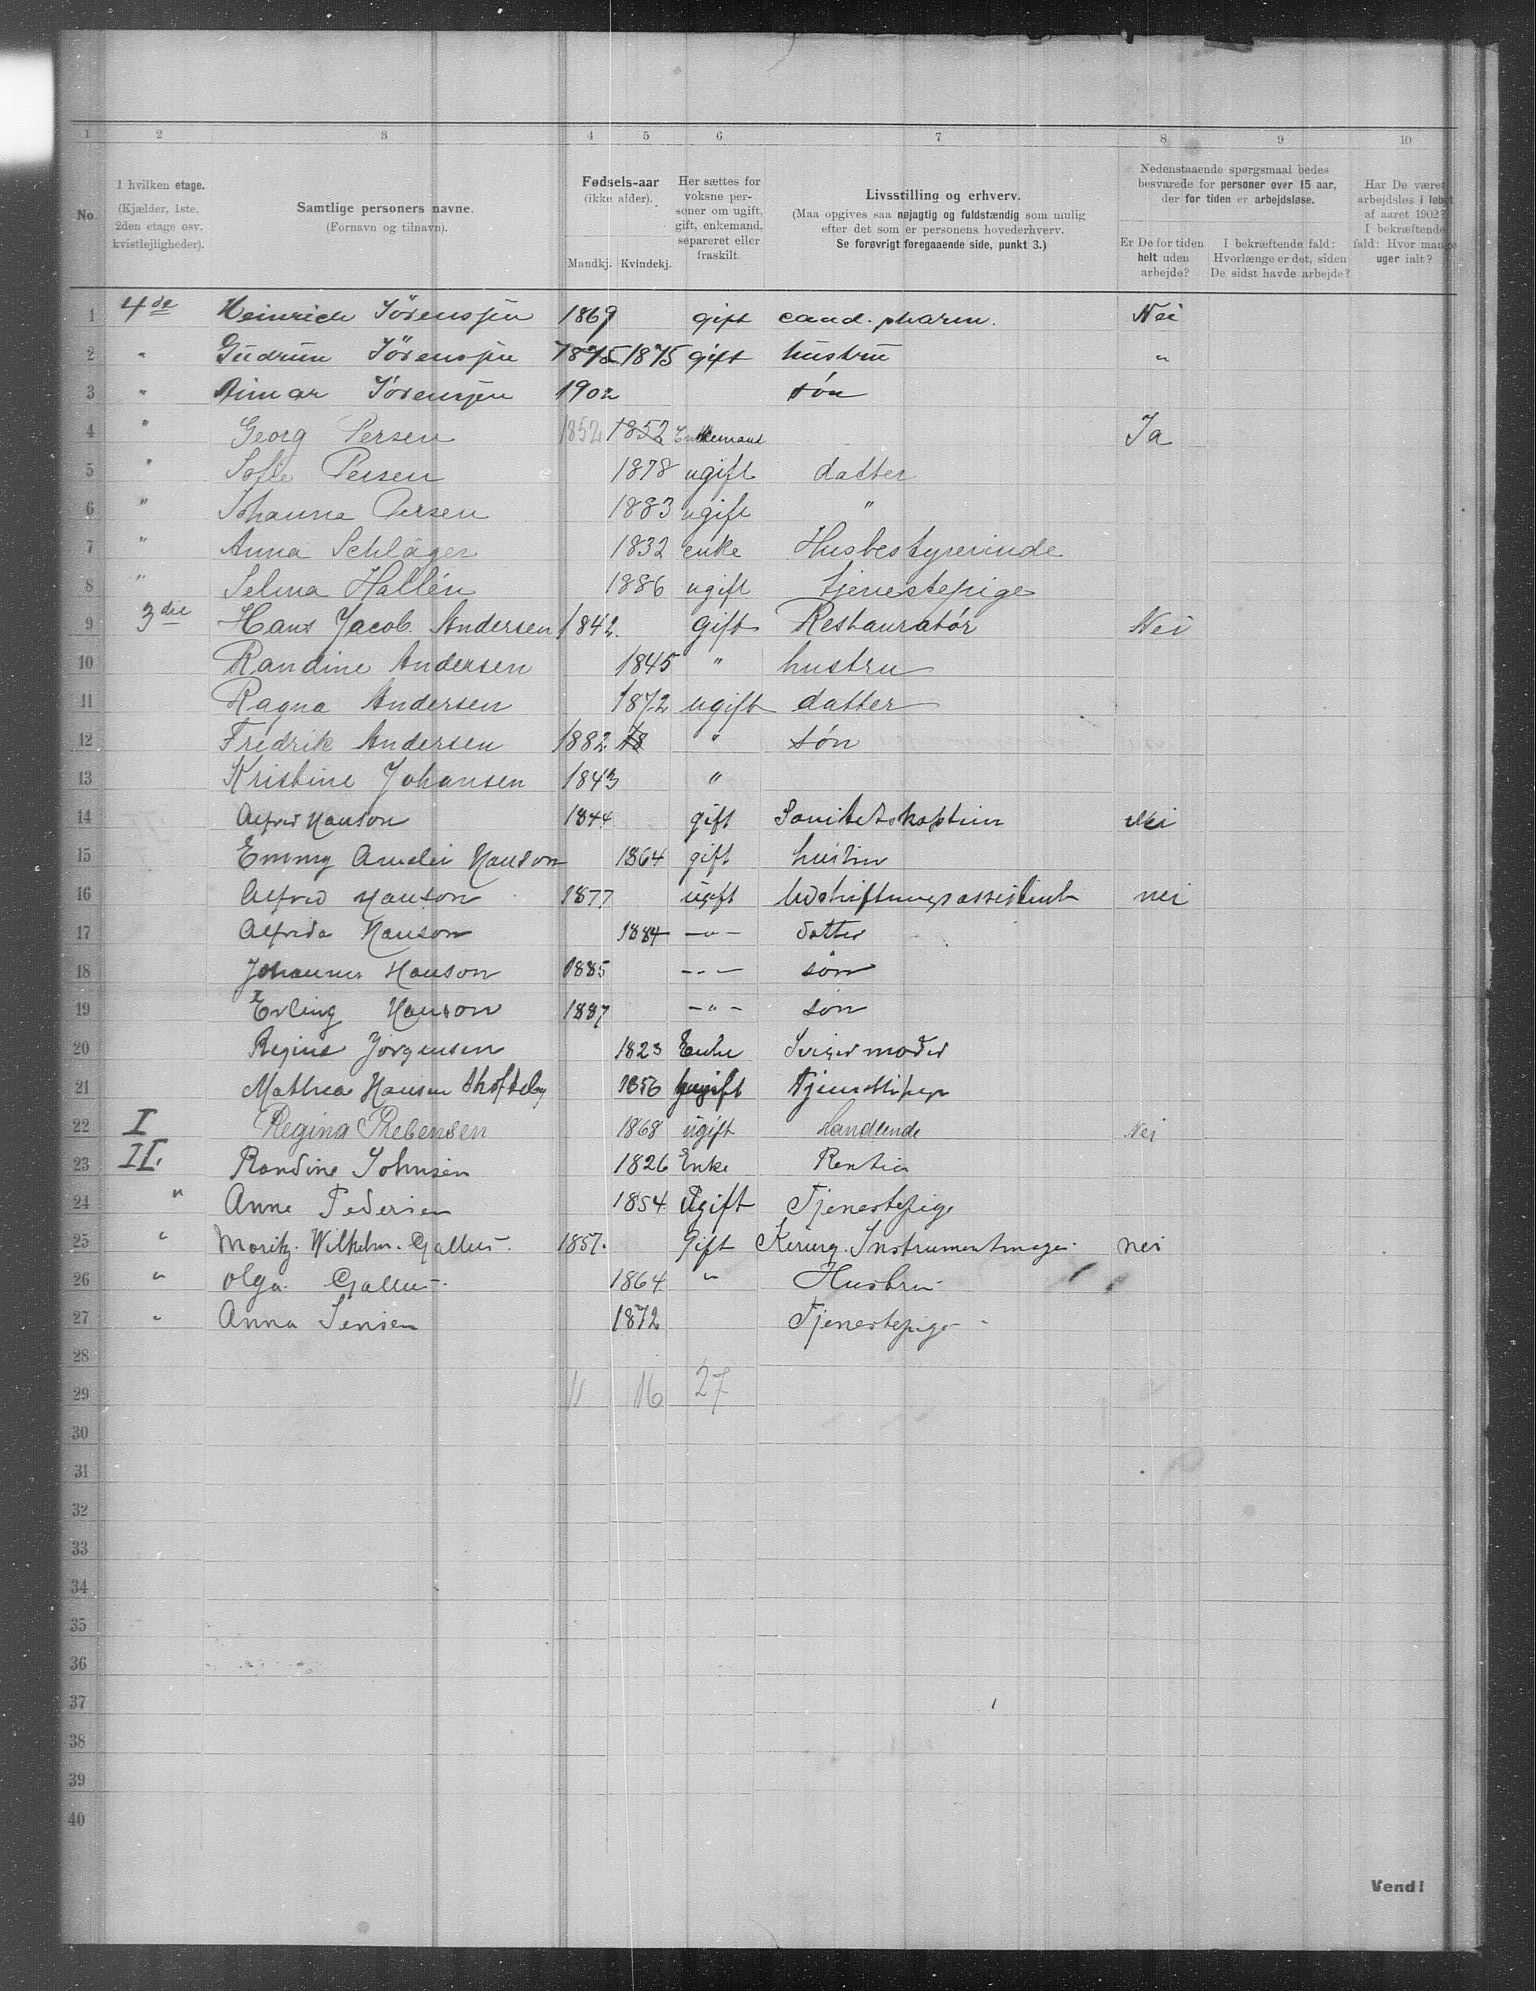 1 2 3 4 5 6 7 8 9 10
No.
I hvilken etage.
(Kjælder, 1ste, 2den etage osv. kvistlejligheder).
Samtlige personers navne.
(Fornavn og tilnavn).
Fødsels-aar
(ikke alder).
Mandkj. Kvindekj.
Her sættes for voksne personer om ugift, gift, enkemand, separeret eller fraskilt.
Livsstilling og erhverv.
(Maa opgives saa nøjagtig og fuldstændig som mulig efter det som er personens hovederhverv.
Se forøvrigt foregaaende side, punkt 3.)
Nedenstaaende spørgsmaal bedes besvarede for personer over 15 aar, der for tiden er arbejdsløse.
Er De for tiden helt uden arbejde?
I bekræftende fald: Hvorlænge er det, siden De sidst havde arbejde?
Har De været arbejdsløs i løbet af aaret 1902? I bekræftende fald: Hvor mange uger ialt?
1 4de Heinrich Sörenssen 1869 gift cand. pharm. Nei
2 " Gudrun Sörenssen 1875 1875 gift hustru "
3 " Sörenssen 1902 søn
4 " Georg Persen 1852 1852 Enkemand Ja
5 " Sofie Persen 1878 ugift datter
6 " Johanna Persen 1883 ugift "
7 " Anna Schläger 1832 enke Husbestyrerinde
8 " Selma Hallén 1886 ugift tjenestepige
9 3die Hans Jacob Andersen 1842. gift Restauratør Nei
10 Randine Andersen 1845 " hustru
11 Ragna Andersen 1872 ugift datter
12 Fredrik Andersen 1882 18 " søn
13 Kristine Johansen 1843 "
14 Alfred Hanson 1844 gift Sanitetskaptein Nei
15 Emmy Amelie Hanson 1864 gift hustru
16 Alfred Hanson 1877 ugift Udskiftningsassistent nei
17 Alfrida Hanson 1884 — " — datter
18 Johannes Hanson 1885 — " — søn
19 Erling Hanson 1887 — " — søn
20 Regine Jørgensen 1823 Enke Svigermoder
21 Mathea Hansen 1856 ugift Tjenestepige
22 I Regina Rebensen 1868 ugift handlende Nei
23 II. Randine Johnsen 1826 Enke Rentier
24 " Anne Pedersen 1854 Ugift Tjenestepige
25 " Moritz. Wilhelm. Gallus. 1857. Gift Kirurg. Instrumentmager nei
26 " Olga Gallus. 1864 " Hustru
27 " Anna Jensen 1872 Tjenestepige
28
29 11 16 27
30
31
32
33
34
35
36
37
38
39
40
Vend!